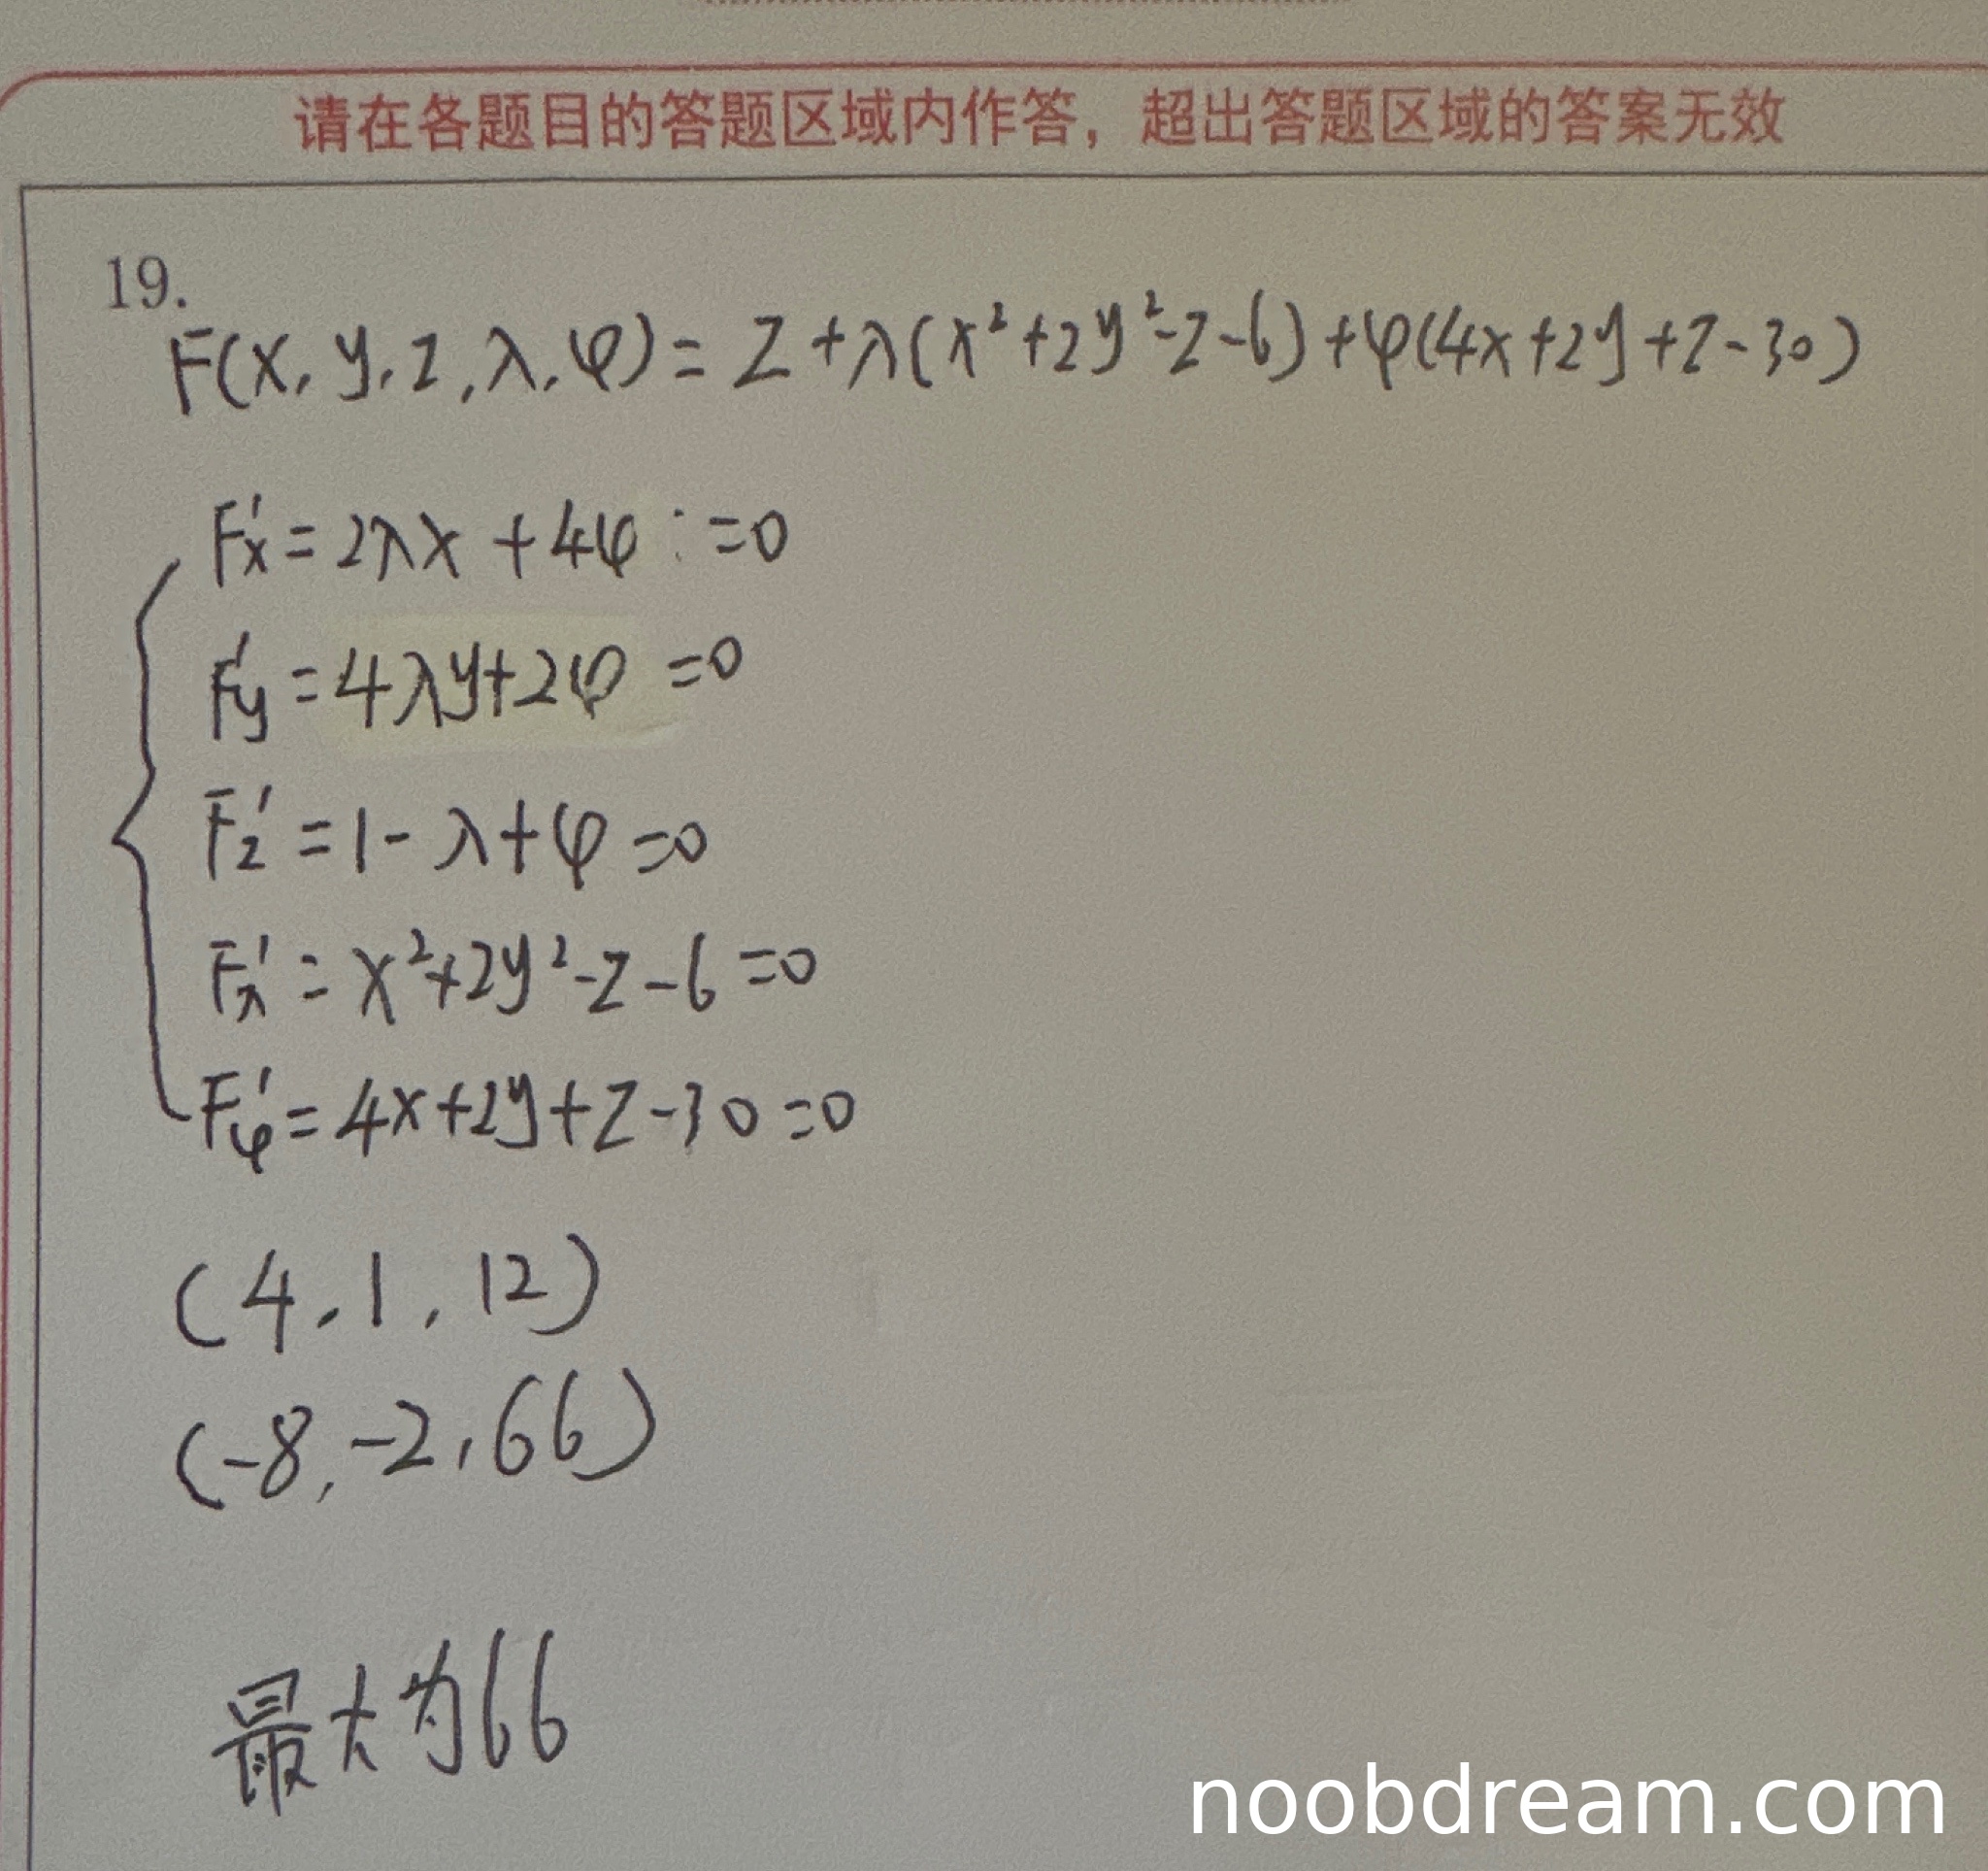 请在各题目的答题区域内作答，超出答题区域的答案无效
19.
F(x, y, z, λ, φ) = z + λ(x²+2y²-z-6) + φ(4x+2y+z-30)
F'x = 2λx + 4φ =0
F'y = 4λy+2φ =0
F'z = 1-λ+φ =0
F'λ = x²+2y²-z-6 =0
F'φ = 4x+2y+z-30 =0
(4, 1, 12)
(-8, -2, 66)
最大为66
noobdream.com